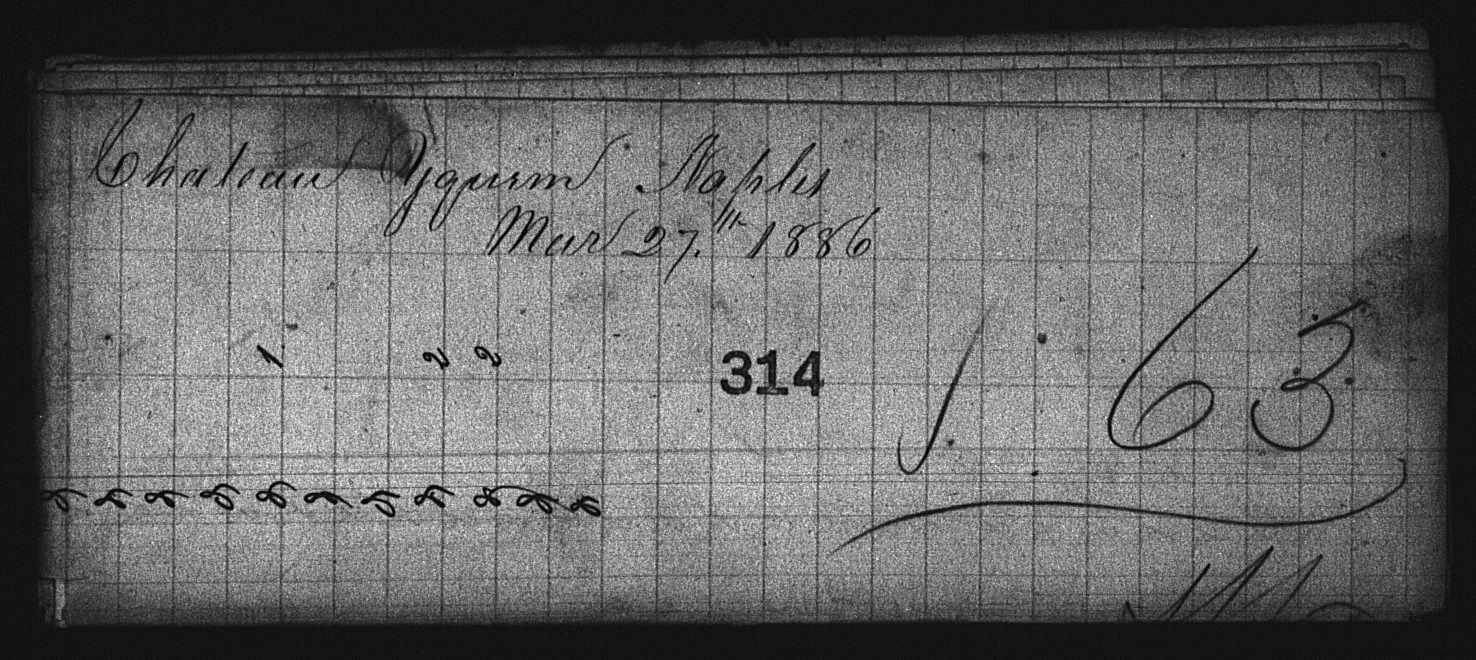 Chateau Yquem Naples
Mar 27.th 1886
1 2 2
314
1. 63